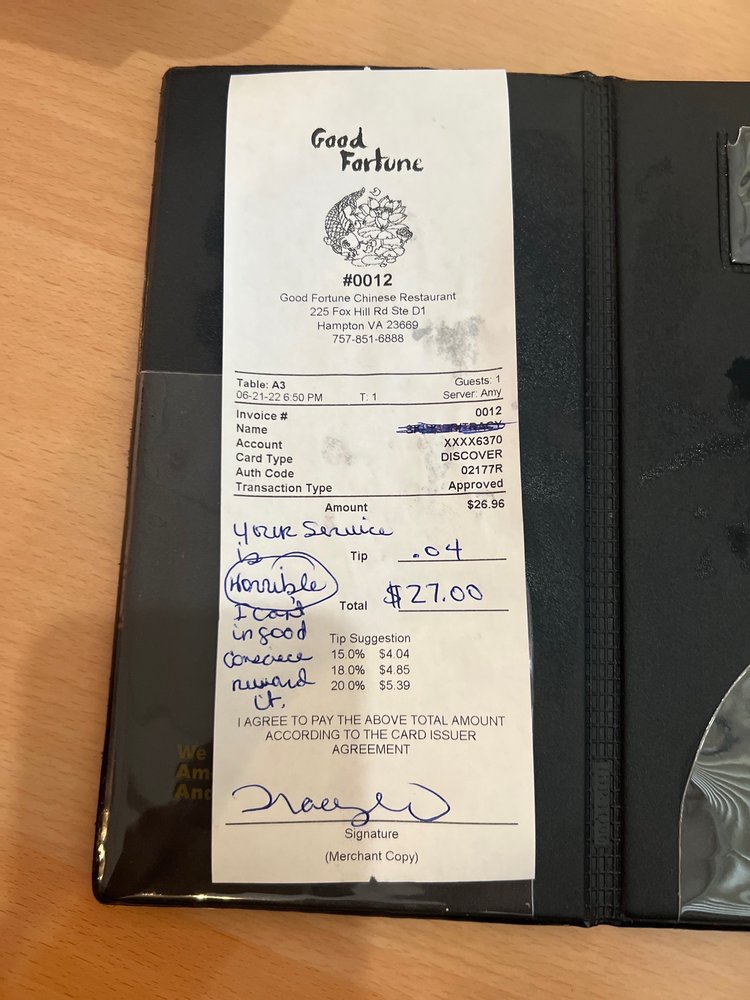 Good
Fortune
#0012
Good Fortune Chinese Restaurant
225 Fox Hill Rd Ste D1
Hampton VA 23669
757-851-6888
Table: A3 Guests: 1
06-21-22 6:50 PM T: 1 Server: Amy
Invoice # 0012
Name
Account XXXX6370
Card Type DISCOVER
Auth Code 02177R
Transaction Type Approved
Amount $26.96
Your Service
is
Horrible
I can't
in good
Consciece
reward
it.
Tip .04
Total $27.00
Tip Suggestion
15.0% $4.04
18.0% $4.85
20.0% $5.39
I AGREE TO PAY THE ABOVE TOTAL AMOUNT
ACCORDING TO THE CARD ISSUER
AGREEMENT
Signature
(Merchant Copy)
We
Am
And